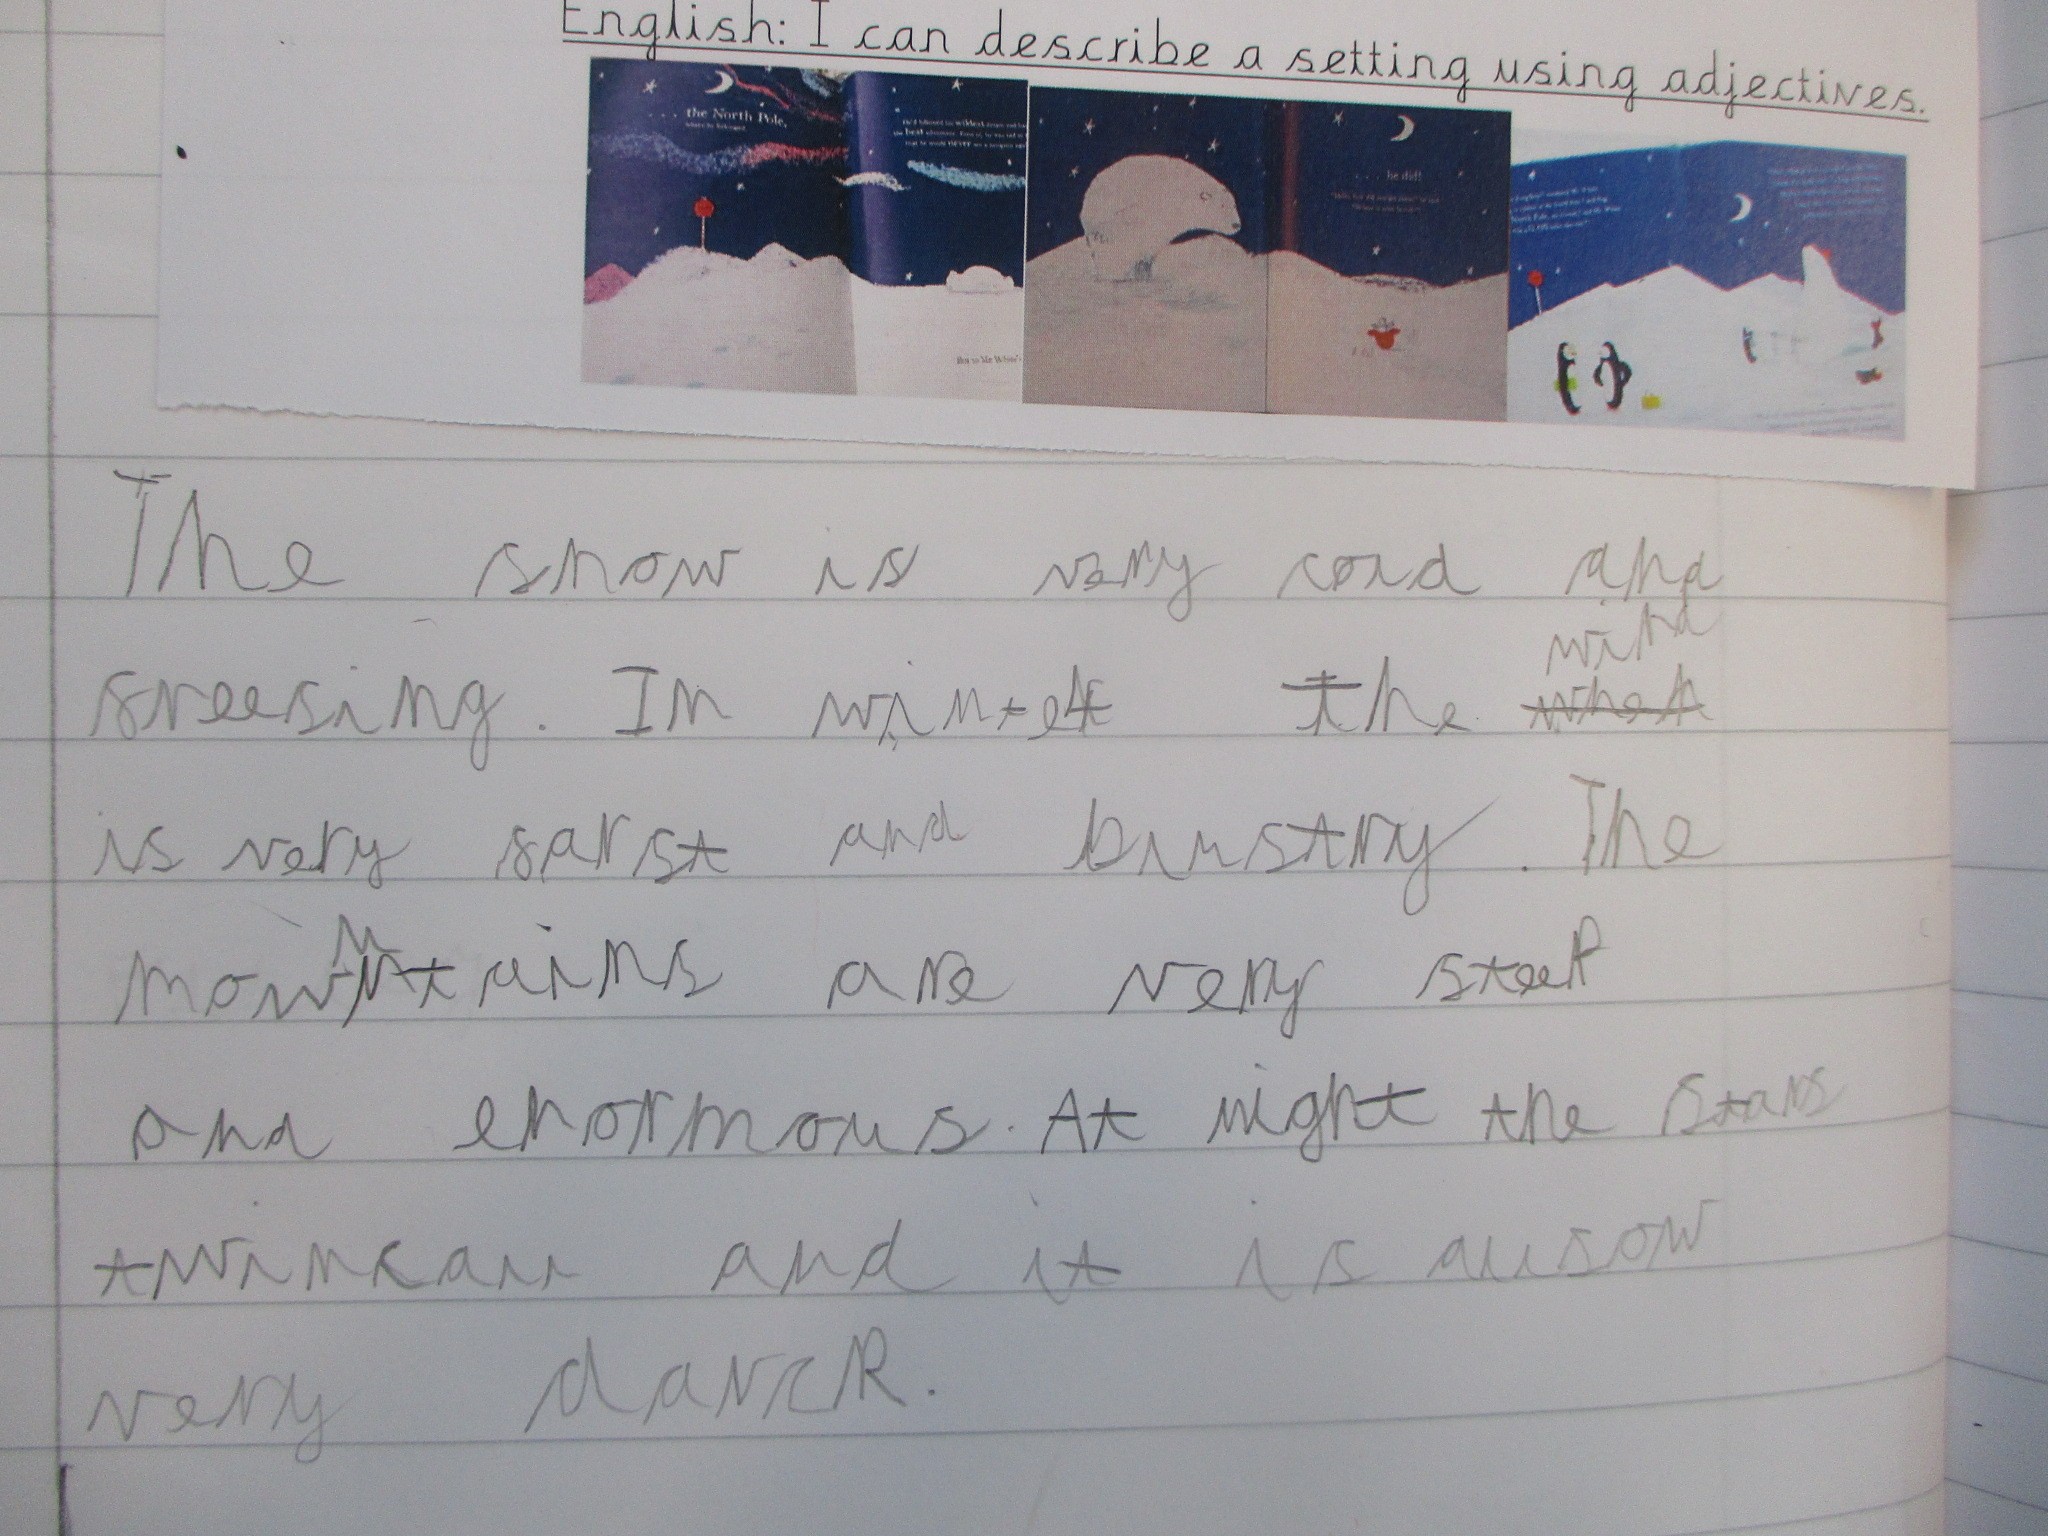 English: I can describe a setting using adjectives.
. . . the North Pole,
. . . he did!
The snow is very cold and
freesing. In winter the wind
is very farst and blustry. The
mountains are very steep
and enormous. At night the stars
twinkall and it is allsow
very darck.